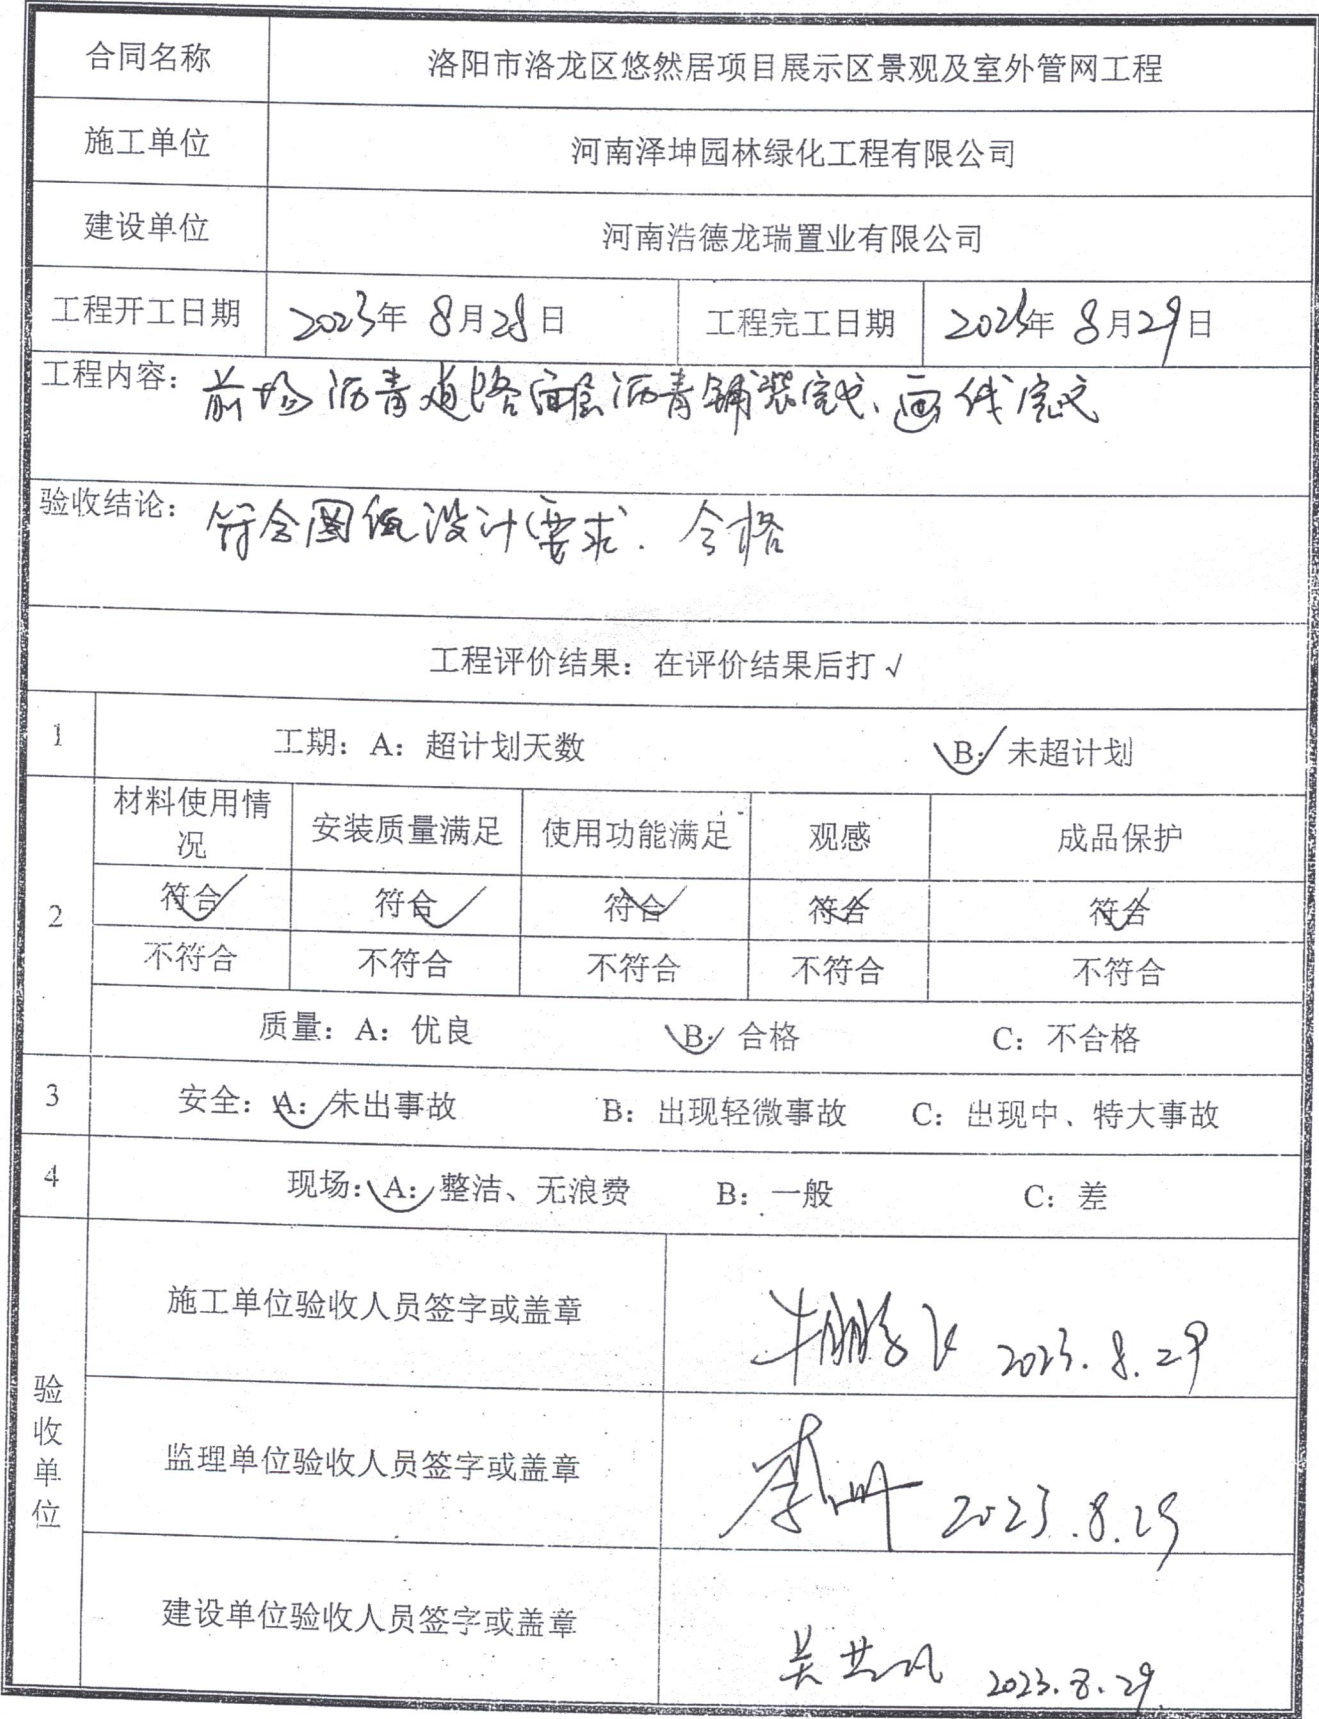 合同名称 洛阳市洛龙区悠然居项目展示区景观及室外管网工程
施工单位 河南泽坤园林绿化工程有限公司
建设单位 河南浩德龙瑞置业有限公司
工程开工日期 2023年 8月28日 工程完工日期 2023年 8月29日
工程内容：前场沥青道路面层沥青铺装完成、画线完成
验收结论：符合图纸设计要求. 合格
工程评价结果：在评价结果后打√
1 工期：A：超计划天数 B：√ 未超计划
材料使用情况 安装质量满足 使用功能满足 观感 成品保护
2 符合√ 符合√ 符合√ 符合√ 符合√
不符合 不符合 不符合 不符合 不符合
质量：A：优良 B：√ 合格 C：不合格
3 安全：A：√ 未出事故 B：出现轻微事故 C：出现中、特大事故
4 现场：A：√ 整洁、无浪费 B：一般 C：差
验收单位
施工单位验收人员签字或盖章 牛鹏飞 2023.8.29
监理单位验收人员签字或盖章 2023.8.29
建设单位验收人员签字或盖章 2023.8.29